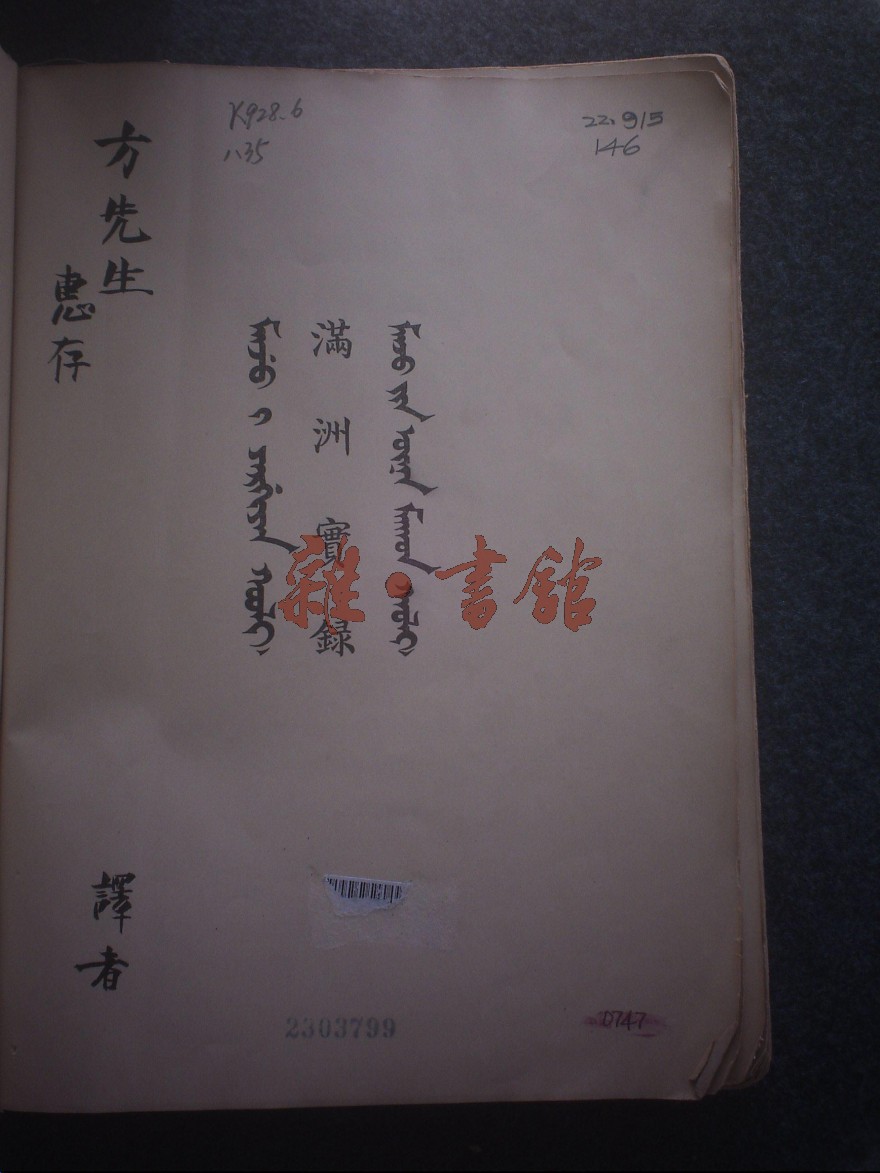 方先生
惠存
譯者
K928.6
1135
22.915
146
ᠮᠠᠨᠵᡠ ᡳ ᠶᠠᡵᡤᡳᠶᠠᠨ ᡴᠣᠣᠯᡳ
滿洲實錄
雜·書館
2303799